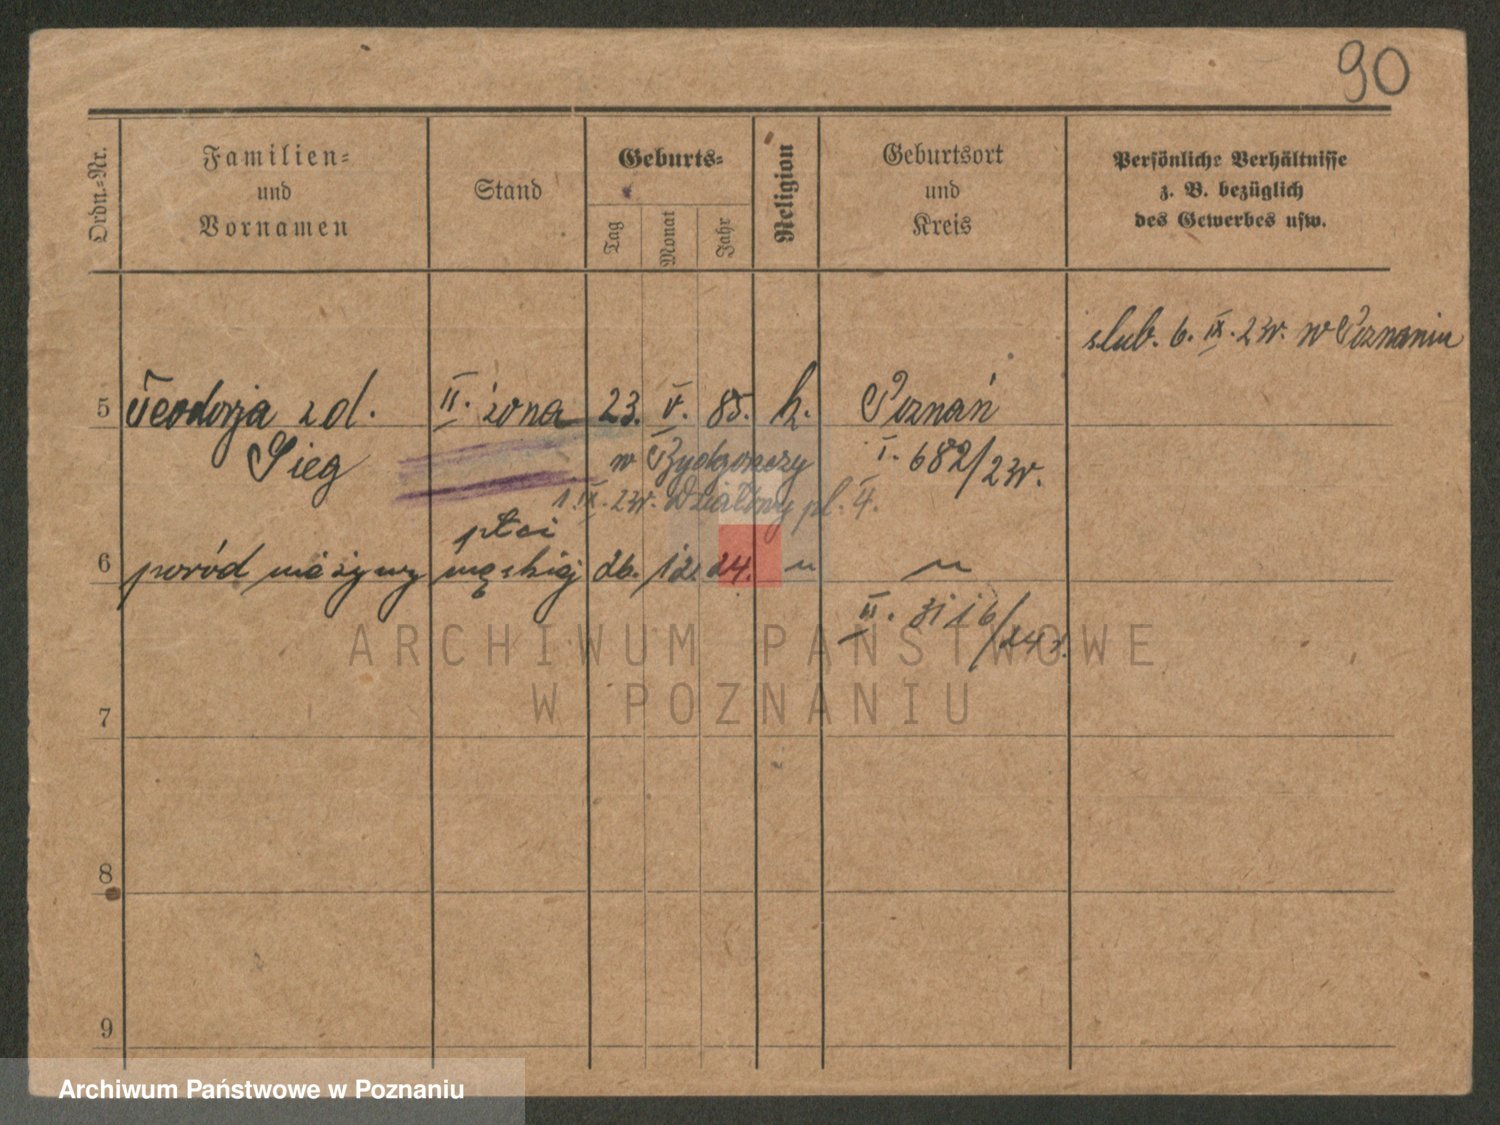 90
Ordn.-Nr.
Familien-
und
Vornamen
Stand
Geburts-
Tag
Monat
Jahr
Religion
Geburtsort
und
Kreis
Persönliche Verhältnisse
z. B. bezüglich
des Gewerbes usw.
ślub. 6. IX. 23r. w Poznaniu
5 Teodozja zd. II. żona 23. V. 85. k. Poznań
Sieg w Bydgoszczy I. 682/23r.
1. IX. 23r. Działowy pl. 4.
płci
6 poród nieżywy męskiej 26. 12. 24. " "
II. 3116/24r.
ARCHIWUM PAŃSTWOWE
W POZNANIU
7
8
9
Archiwum Państwowe w Poznaniu